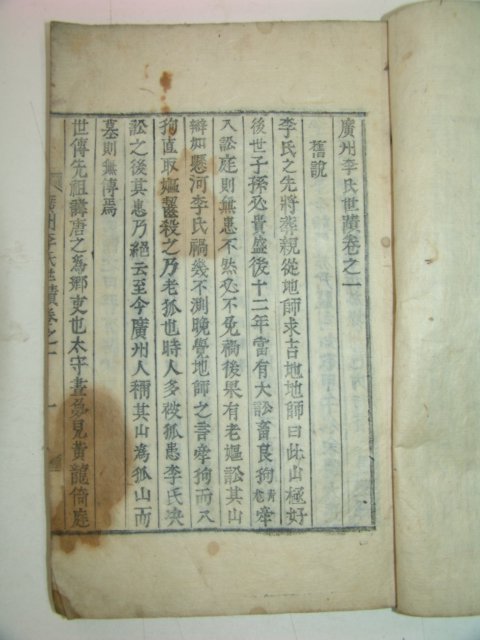 廣州李氏世蹟卷之一
舊說
李氏之先將葬親從地師求吉地地師曰此山極好
後世子孫必貴盛後十二年當有大訟畜良狗青尨牽
入訟庭則無患不然必不免禍後果有老嫗訟其山
辯如懸河李氏禍幾不測晚覺地師之言牽狗而入
狗直取嫗齧殺之乃老狐也時人多被狐患李氏決
訟之後其患乃絕云至今廣州人稱其山爲狐山而
墓則無傳焉
世傳先祖諱唐之爲鄉吏也太守晝夢見黃龍倚庭
廣州李氏世蹟卷之一
一